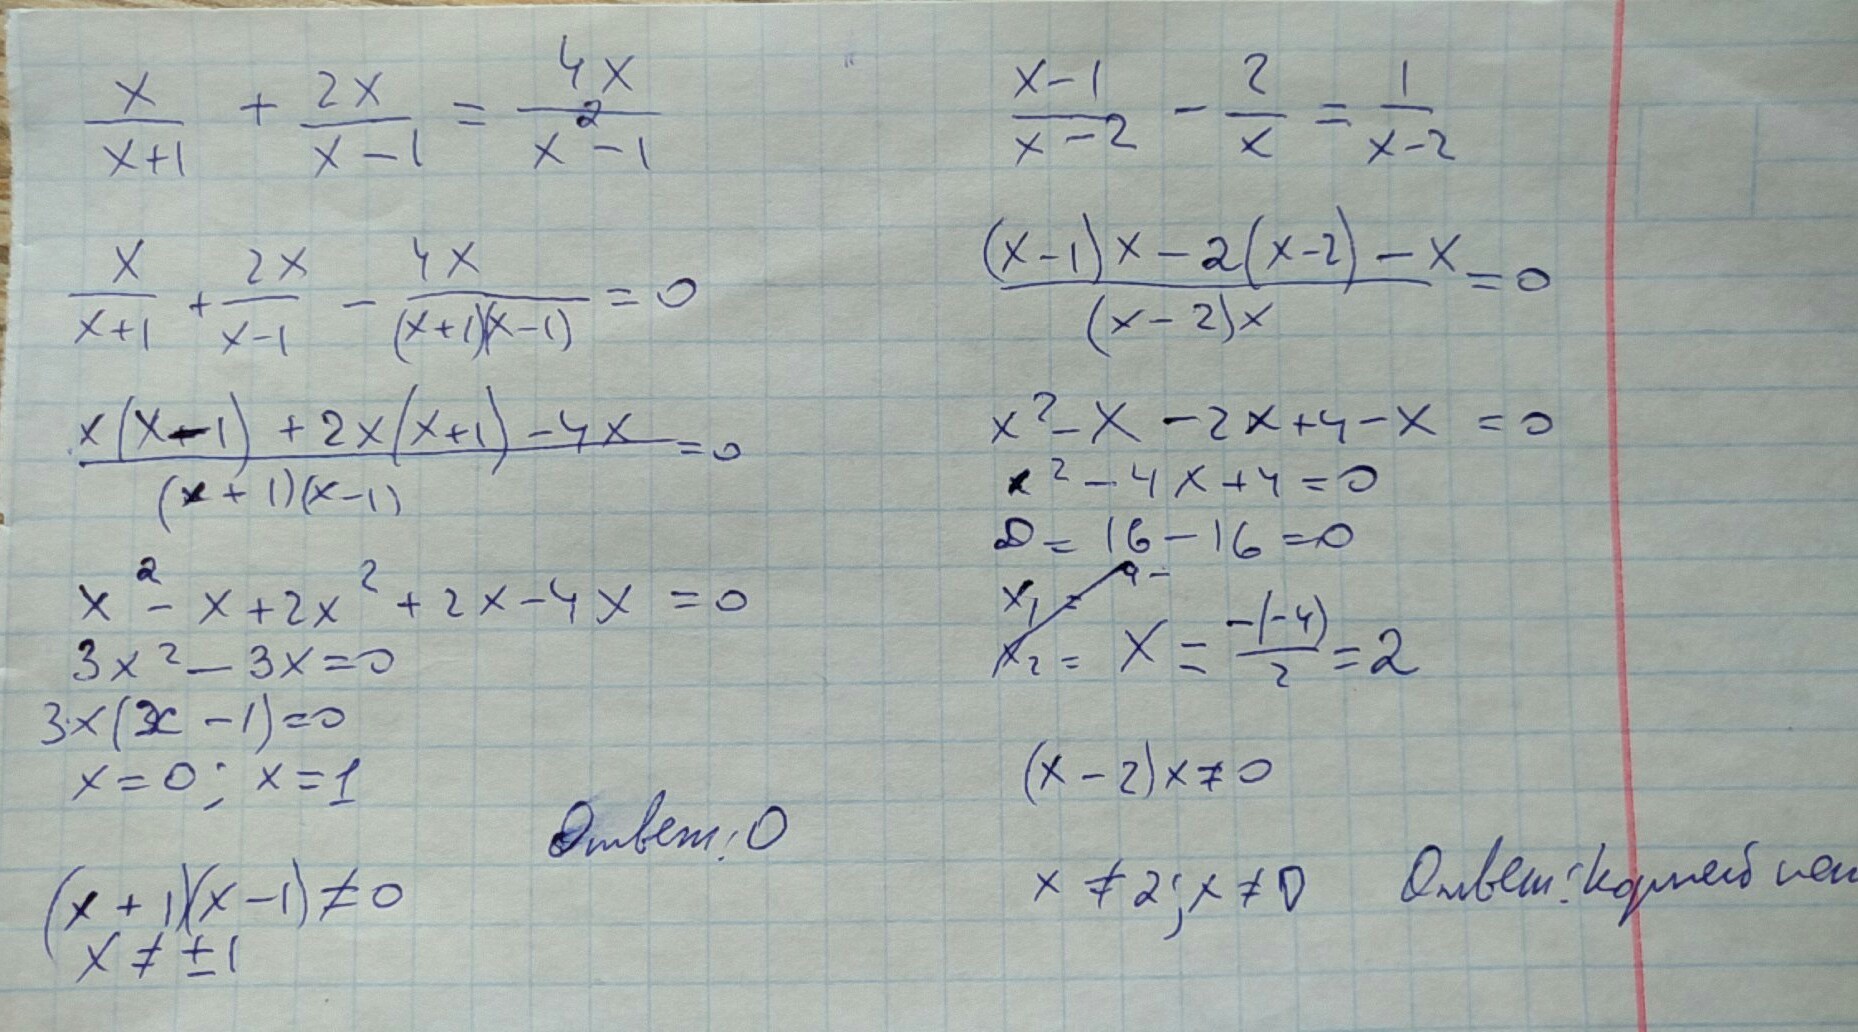 x/(x+1) + 2x/(x-1) = 4x/(x²-1)
x/(x+1) + 2x/(x-1) - 4x/((x+1)(x-1)) = 0
(x(x-1) + 2x(x+1) - 4x)/((x+1)(x-1)) = 0
x² - x + 2x² + 2x - 4x = 0
3x² - 3x = 0
3x(x - 1) = 0
x = 0; x = 1
Ответ: 0
(x+1)(x-1) ≠ 0
x ≠ ±1
(x-1)/(x-2) - 2/x = 1/(x-2)
((x-1)x - 2(x-2) - x)/((x-2)x) = 0
x² - x - 2x + 4 - x = 0
x² - 4x + 4 = 0
D = 16 - 16 = 0
x₁ =
x₂ = x = -(-4)/2 = 2
(x-2)x ≠ 0
x ≠ 2; x ≠ 0
Ответ: корней нет